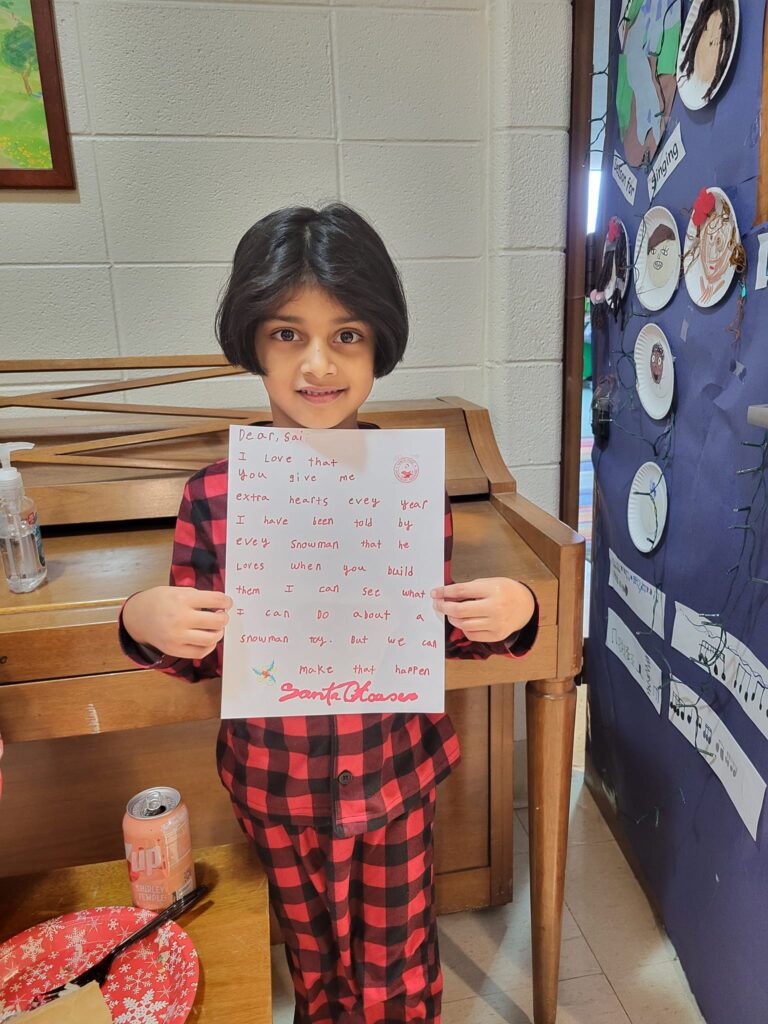 Dear, Sai.
I Love that
you give me
extra hearts evey year
I have been told by
evey snowman that he
Loves when you build
them I can see what
I can Do about a
snowman toy. But we can
make that happen
Santa Clause
Singing
up
SHIRLEY
TEMPLE